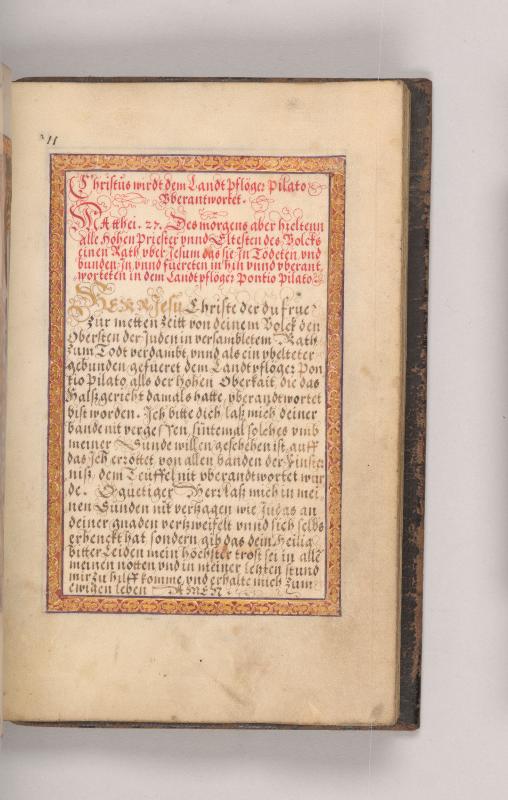 11
Christus wirdt dem Landt Pfläger Pilato
Vberantwortet.
Matthei. 27. Des morgens aber hieltenn
alle Hohen Priester vnnd Eltesten des Volcks
einen Rath vber Jesum das sie Jn Tödeten, vnd
bunden Jn vnnd füereten in hin vnnd vberant,
worteten in dem Landt pfläger Pontio Pilato.
HERR Jesu Christe der du frue
zur metten Zeitt von deinem Volck den
Obersten der Juden in versambletem Rath
zum Todt verdambt, vnnd als ein vbelteter
gebunden gefueret dem Landt pfläger Pon
tio Pilato, alls der hohen Oberkait, die das
Halßgericht damals hatte, vberandtwortet
bist worden. Jch bitte dich laß mich deiner
bande nit vergessen, sintemal solches vmb
meiner Sünde willen geschehen ist, auff
das Jch errettet von allen banden der Finster
niß, dem Teuffel nit vberandtwortet wur
de. O guetiger Herr laß mich in mei
nen Sünden nit verzagen wie Judas an
deiner gnaden verzweifelt vnnd sich selbs
erhenckt hat sondern gib das dein Heilig
bitter Leiden mein höchster trost sei in alle
meinen nötten vnd in meiner letzten stund
mir zu hilff komme, vnd erhalte mich zum
ewigen leben AMEN